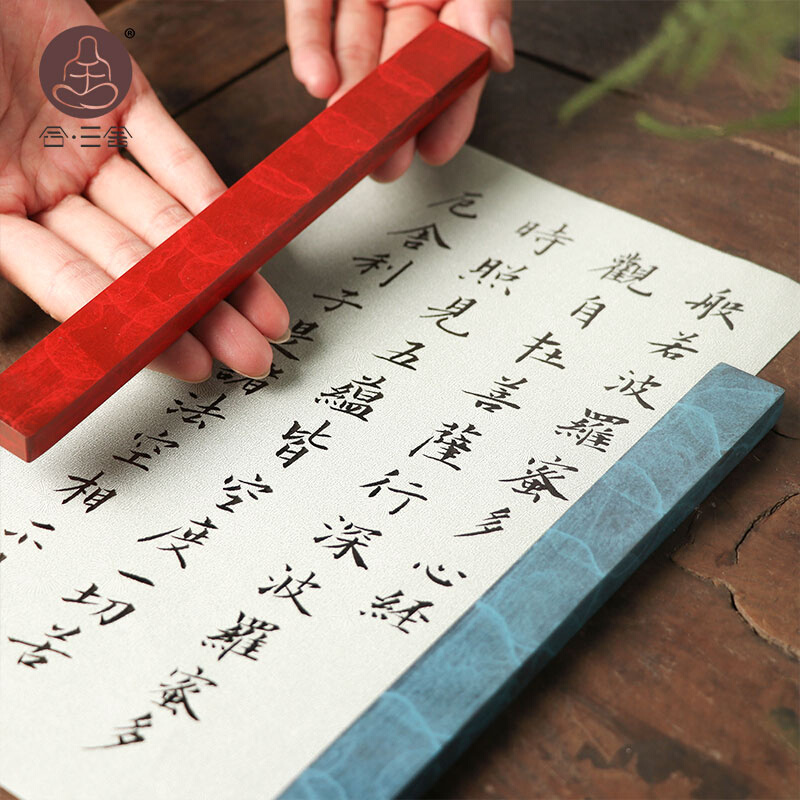 舍·三舍
®
般若波羅蜜多心経
觀自在菩薩行深波羅蜜多
時照見五蘊皆空度一切苦
厄舍利子是諸法空相不